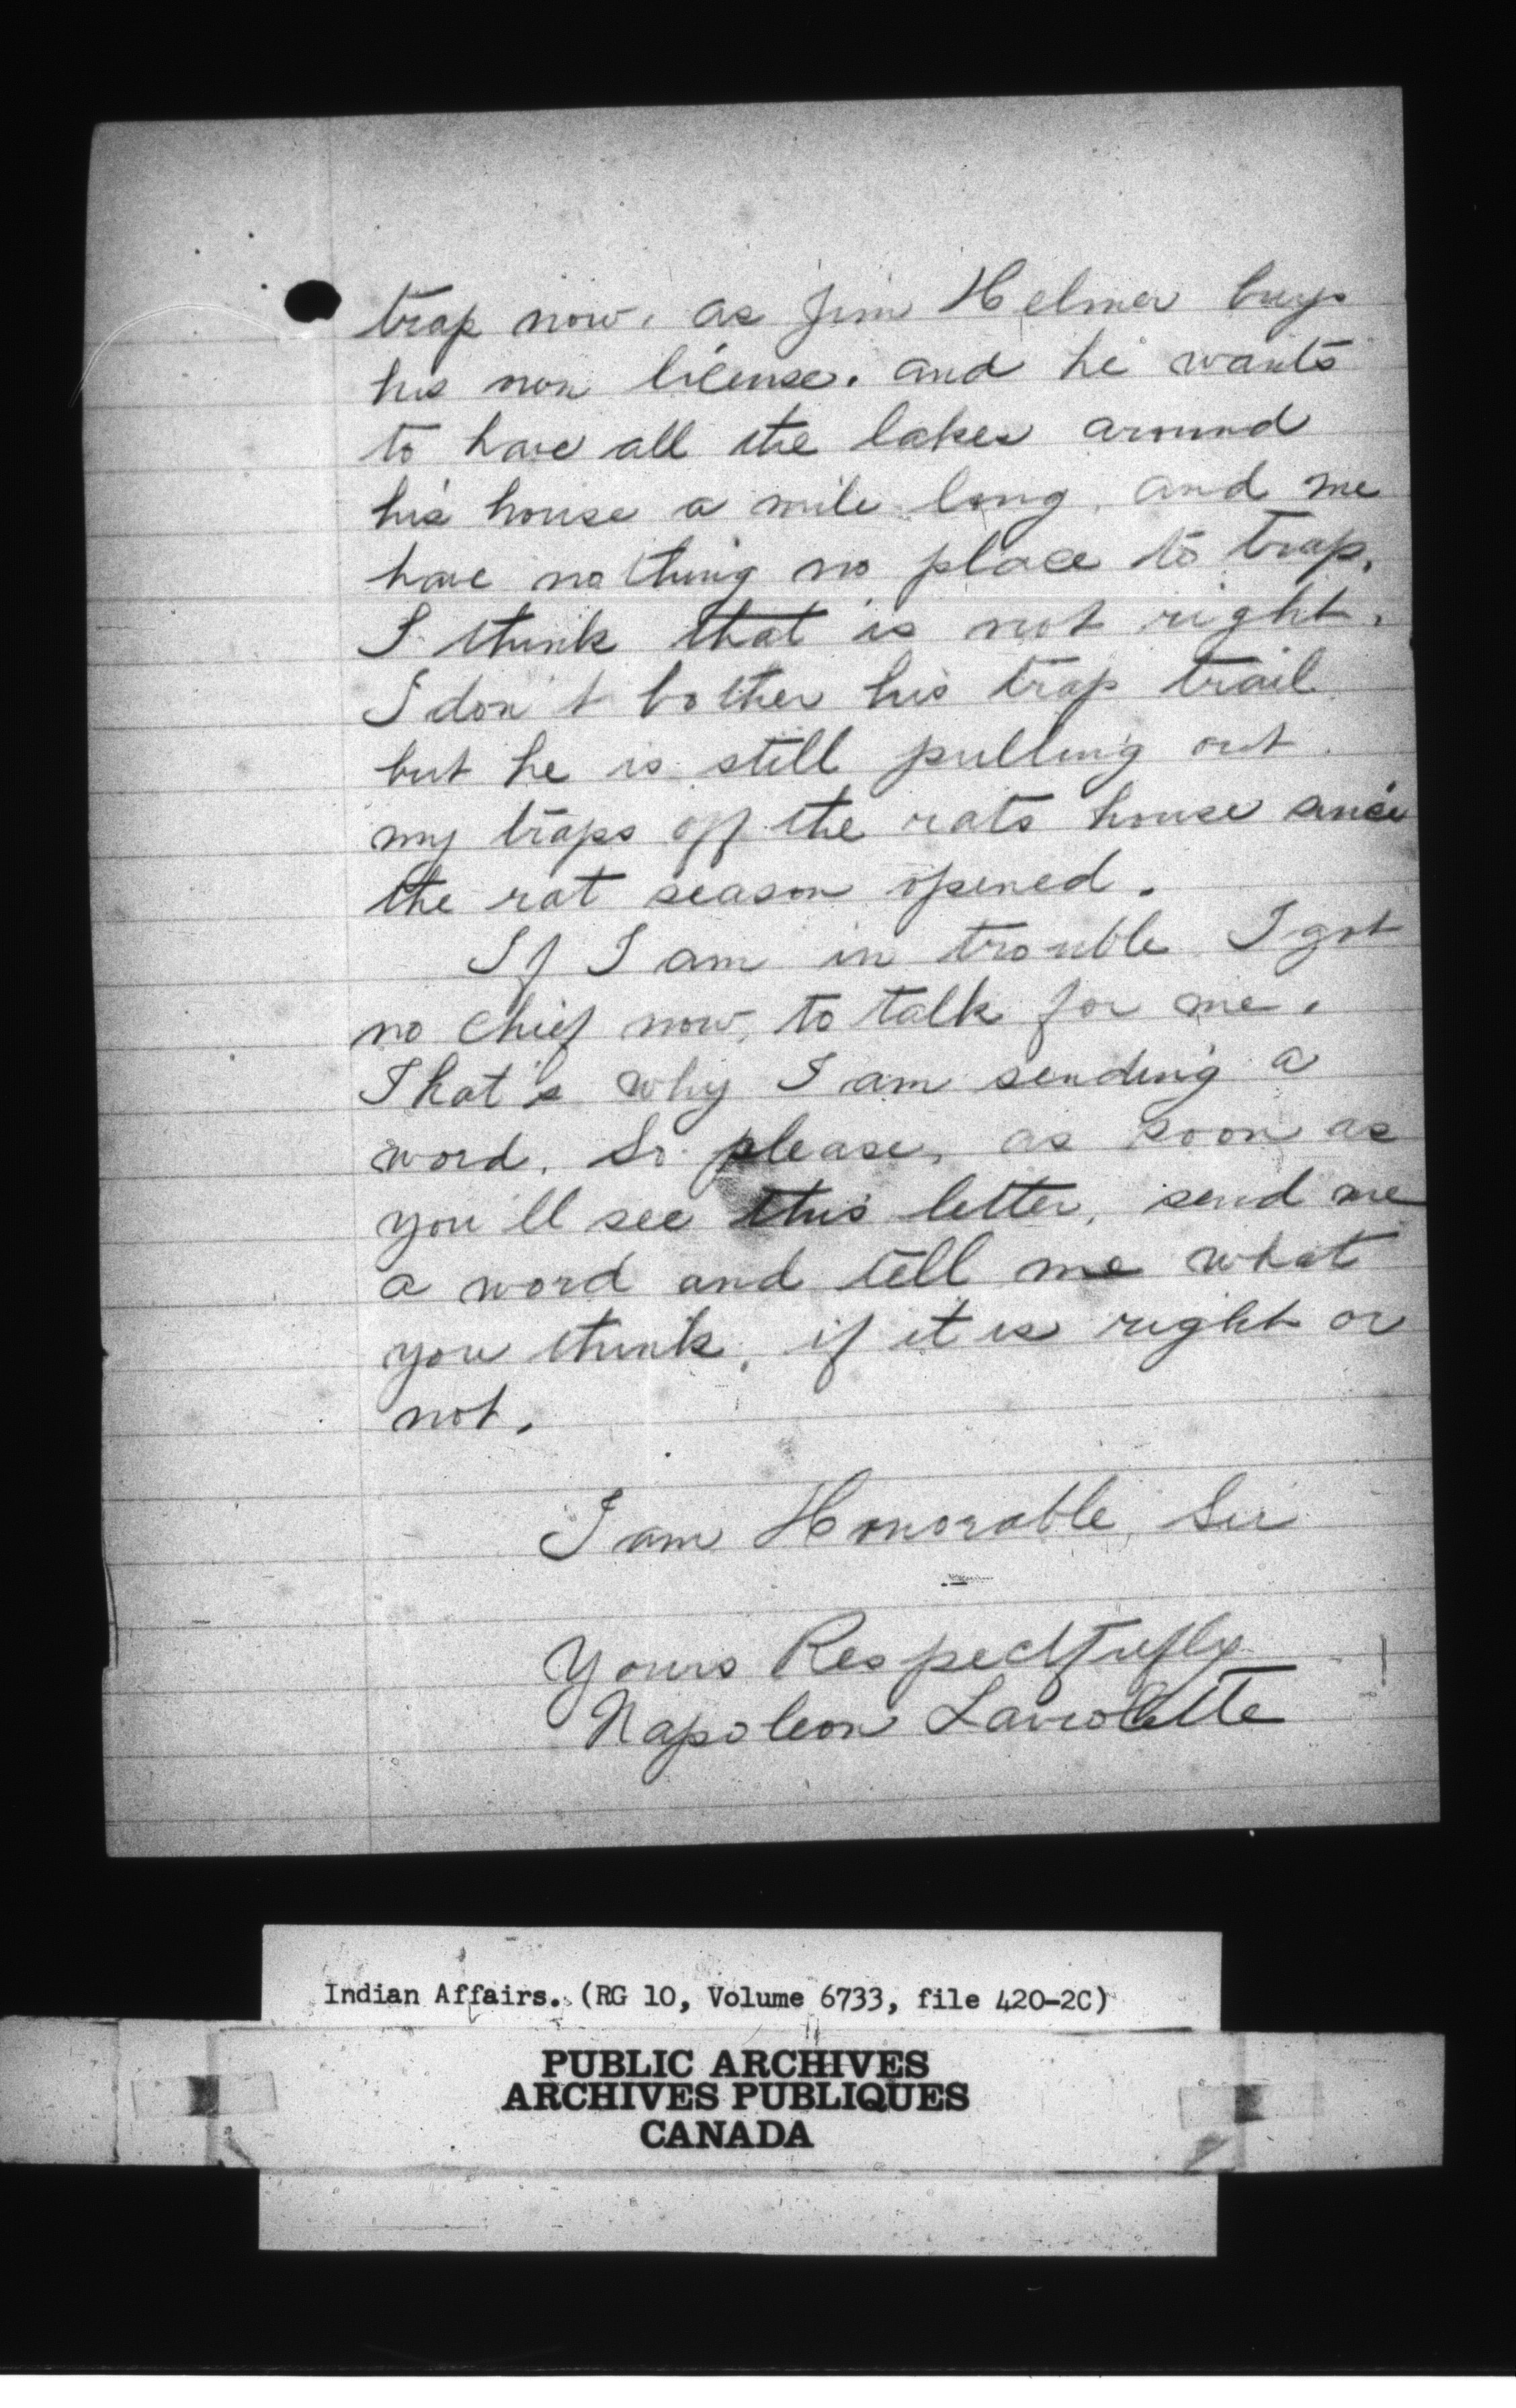 trap now, as Jim Helmer buys
his own license. and he wants
to have all the lakes around
his house a mile long, and me
have nothing no place to trap.
I think that is not right.
I don't bother his trap trail
but he is still pulling out
my traps off the rats house since
the rat season opened.
If I am in trouble I got
no chief now, to talk for me.
That's why I am sending a
word. Sr please, as soon as
you'll see this letter, send me
a word and tell me what
you think, if it is right or
not.
I am Honorable Sir
Yours Respectfully
Napoleon Laviolette
Indian Affairs. (RG 10, Volume 6733, file 420-2C)
PUBLIC ARCHIVES
ARCHIVES PUBLIQUES
CANADA